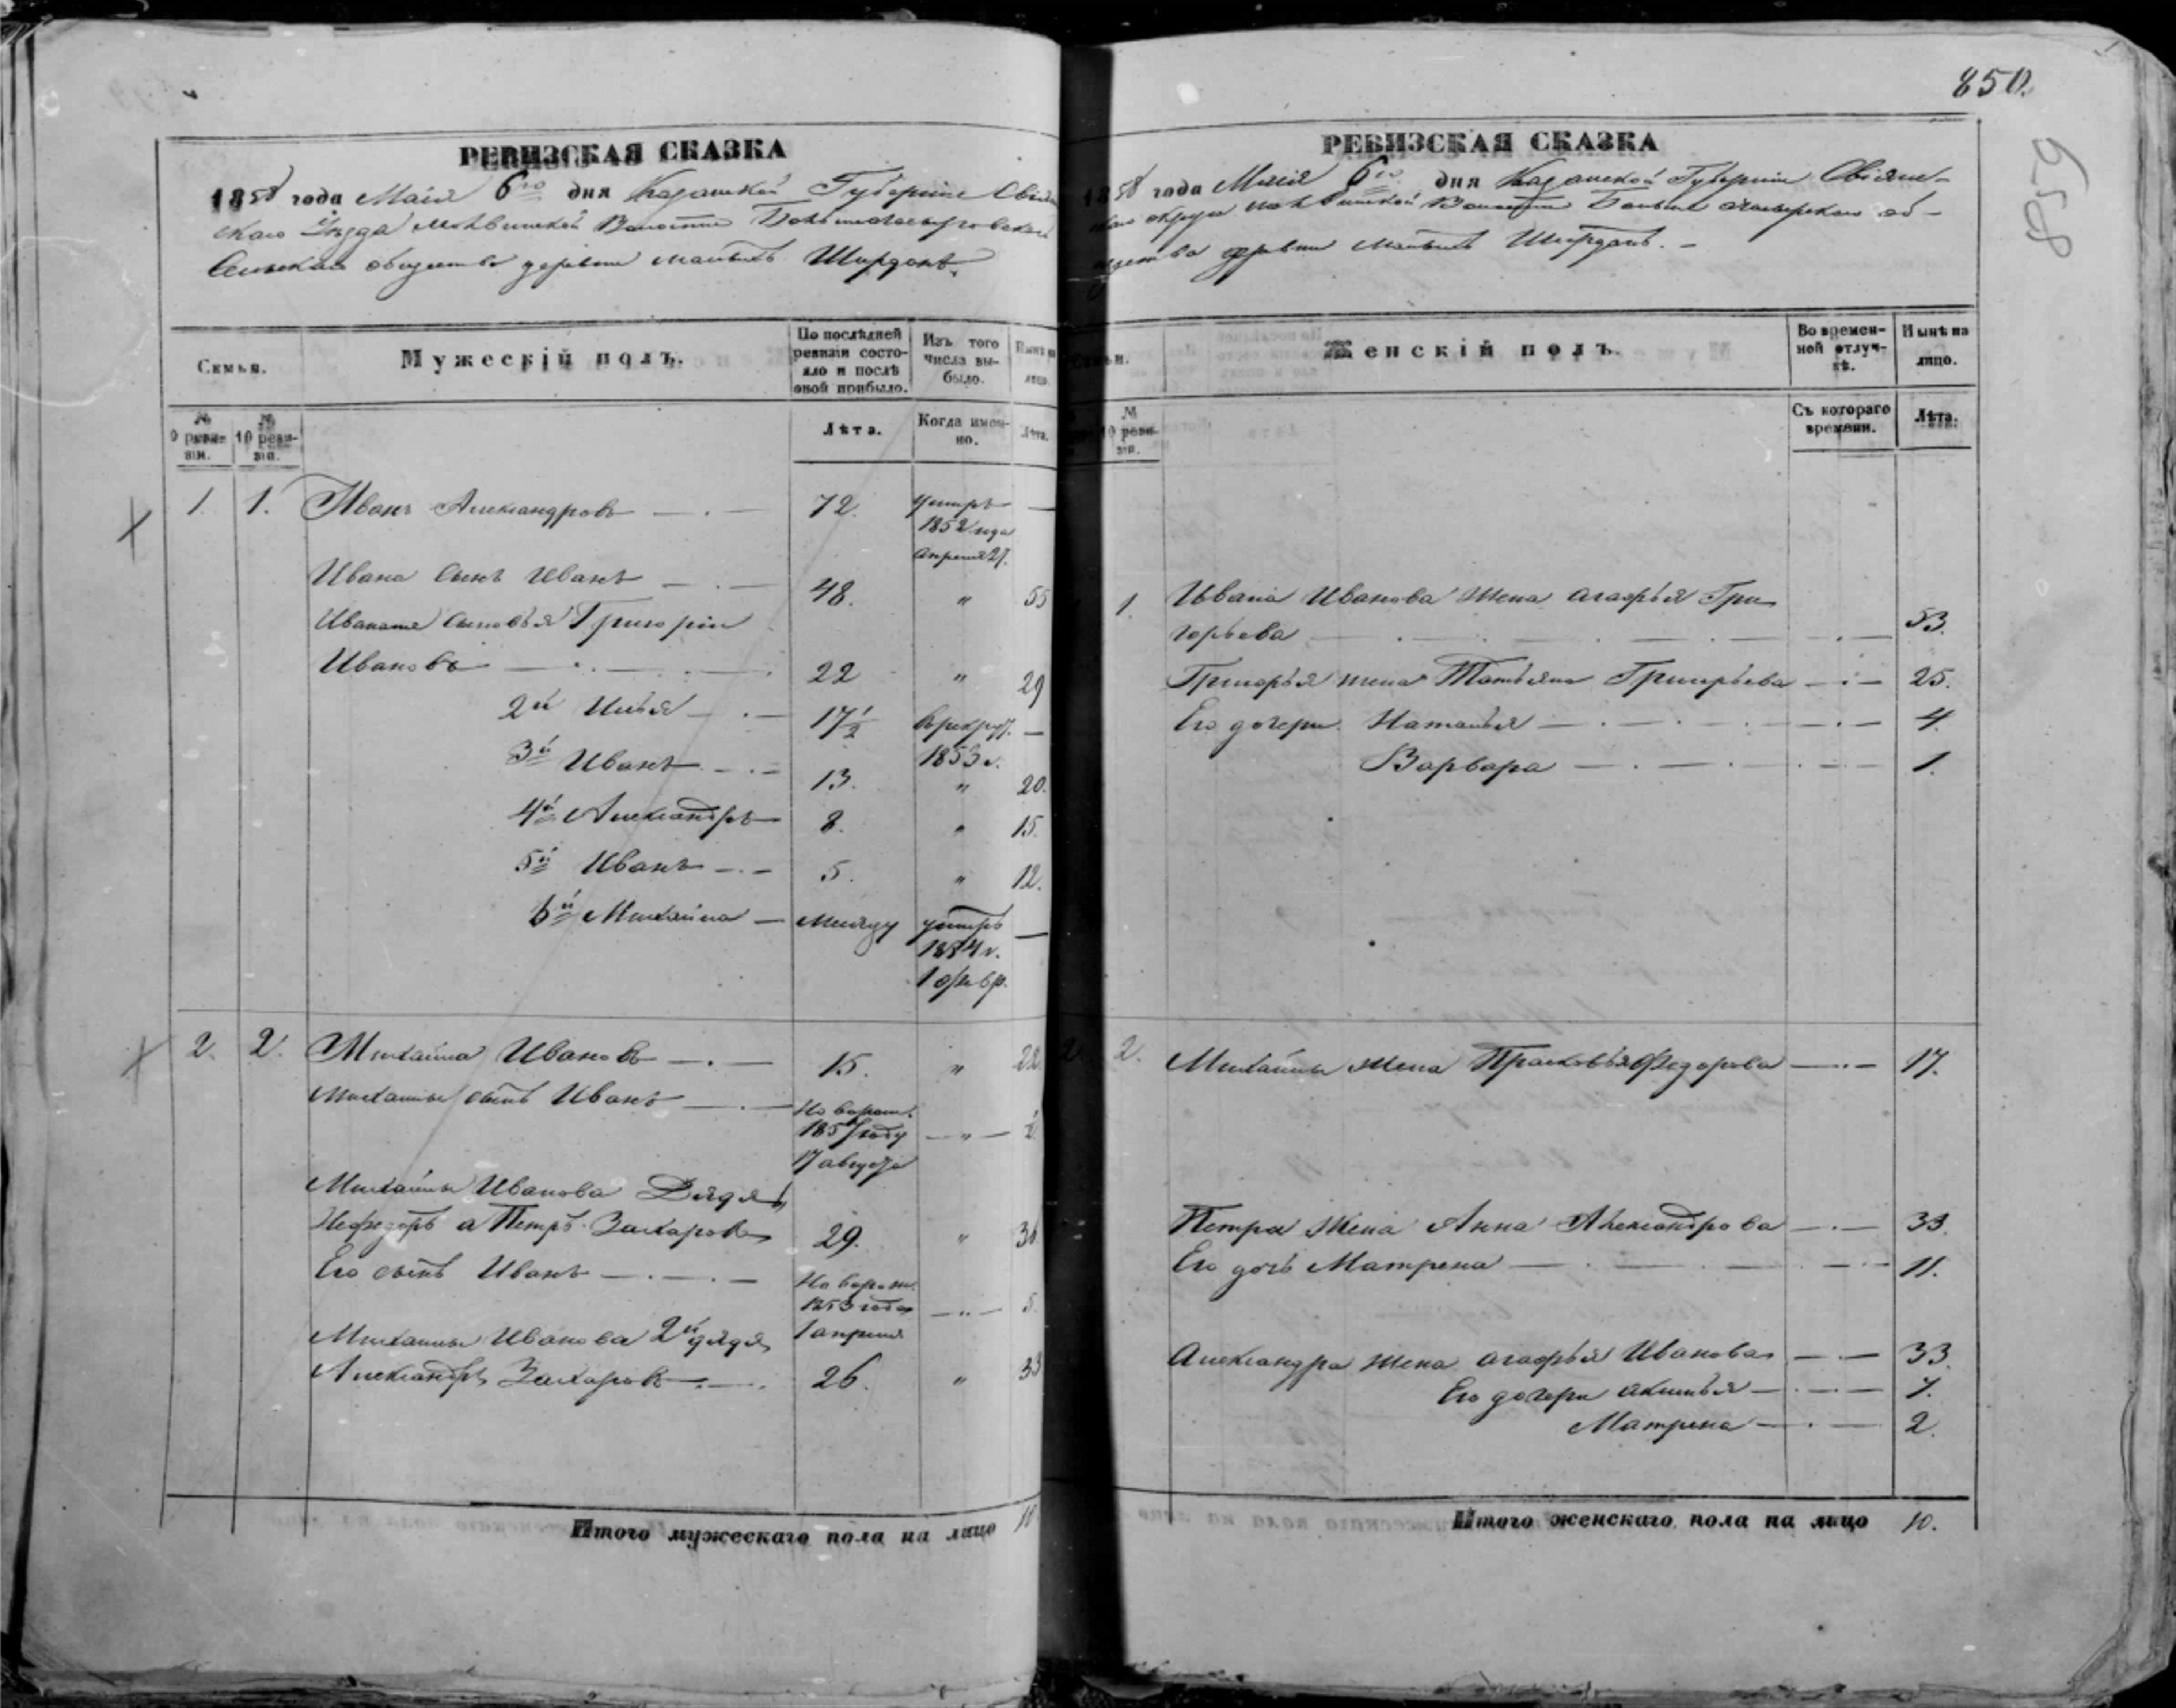 850.
859
РЕВИЗСКАЯ СКАЗКА
1858 года Маія 6го дня Казанской Губерніи Свіяж
скаго Уѣзда Моквинской Волости
Сельскаго общества деревни Малыхъ Ширданъ.
Семьи.
Мужескій полъ.
По послѣдней ревизіи состояло и послѣ оной прибыло.
Изъ того числа выбыло.
Нынѣ на лицо.
№ 9 ревизіи.
№ 10 ревизіи.
Лѣта.
Когда именно.
Лѣта.
1. 1. Иванъ Александровъ 72. умеръ —
1852 года
апреля 27.
Ивана сынъ Иванъ 48. " 55
Ивановы сыновья Григорій
Ивановъ 22 " 29
2й Илья 17½ в рекрут. —
1853 г.
3й Иванъ 13. " 20.
4й Александръ 8. " 15.
5й Иванъ 5. " 12.
6й Михайла между умеръ —
1854 г.
1 февр.
2. 2. Михайла Ивановъ 15. " 22.
Михайлы сынъ Иванъ Новорож.
1857 году — " —
17 августа
Михайлы Иванова Дядя
Нефедоръ а Петръ Захаровъ 29. " 36
Его сынъ Иванъ Новорож.
1853 года — " — 5.
1 апреля
Михайлы Иванова 2й дядя
Александръ Захаровъ 26. " 33
Итого мужескаго пола на лицо 10
РЕВИЗСКАЯ СКАЗКА
1858 года Маія 6го дня Казанской Губерніи Свіяж-
скаго округа Моквинской Волости об-
щества деревни Малыхъ Ширданъ. -
Семьи.
Женскій полъ.
Во временной отлучкѣ.
Нынѣ на лицо.
№ 10 ревизіи.
Съ котораго времени.
Лѣта.
1. Ивана Иванова жена Агафья Гри
горьева 53.
Григорья жена Татьяна Григорьева 25.
Его дочери Наталья 4.
Варвара 1.
2. 2. Михайлы жена Прасковья Федорова 17.
Петра жена Анна Александрова 33.
Его дочь Матрена 11.
Александра жена Агафья Иванова 33.
Его дочери Акилья 7.
Матрена 2.
Итого женскаго пола на лицо 10.